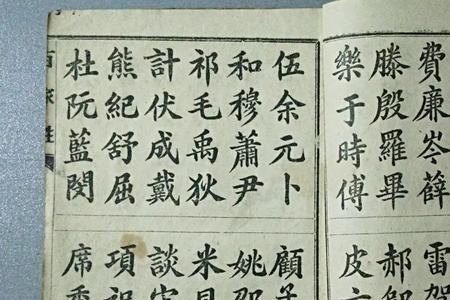 費廉岑薛
滕殷羅畢
樂于時傅
伍余元卜
和穆蕭尹
祁毛禹狄
計伏成戴
熊紀舒屈
杜阮藍閔
雷賀
郝
皮
顧
姚邵
米貝
談
項祝
席季
百家姓